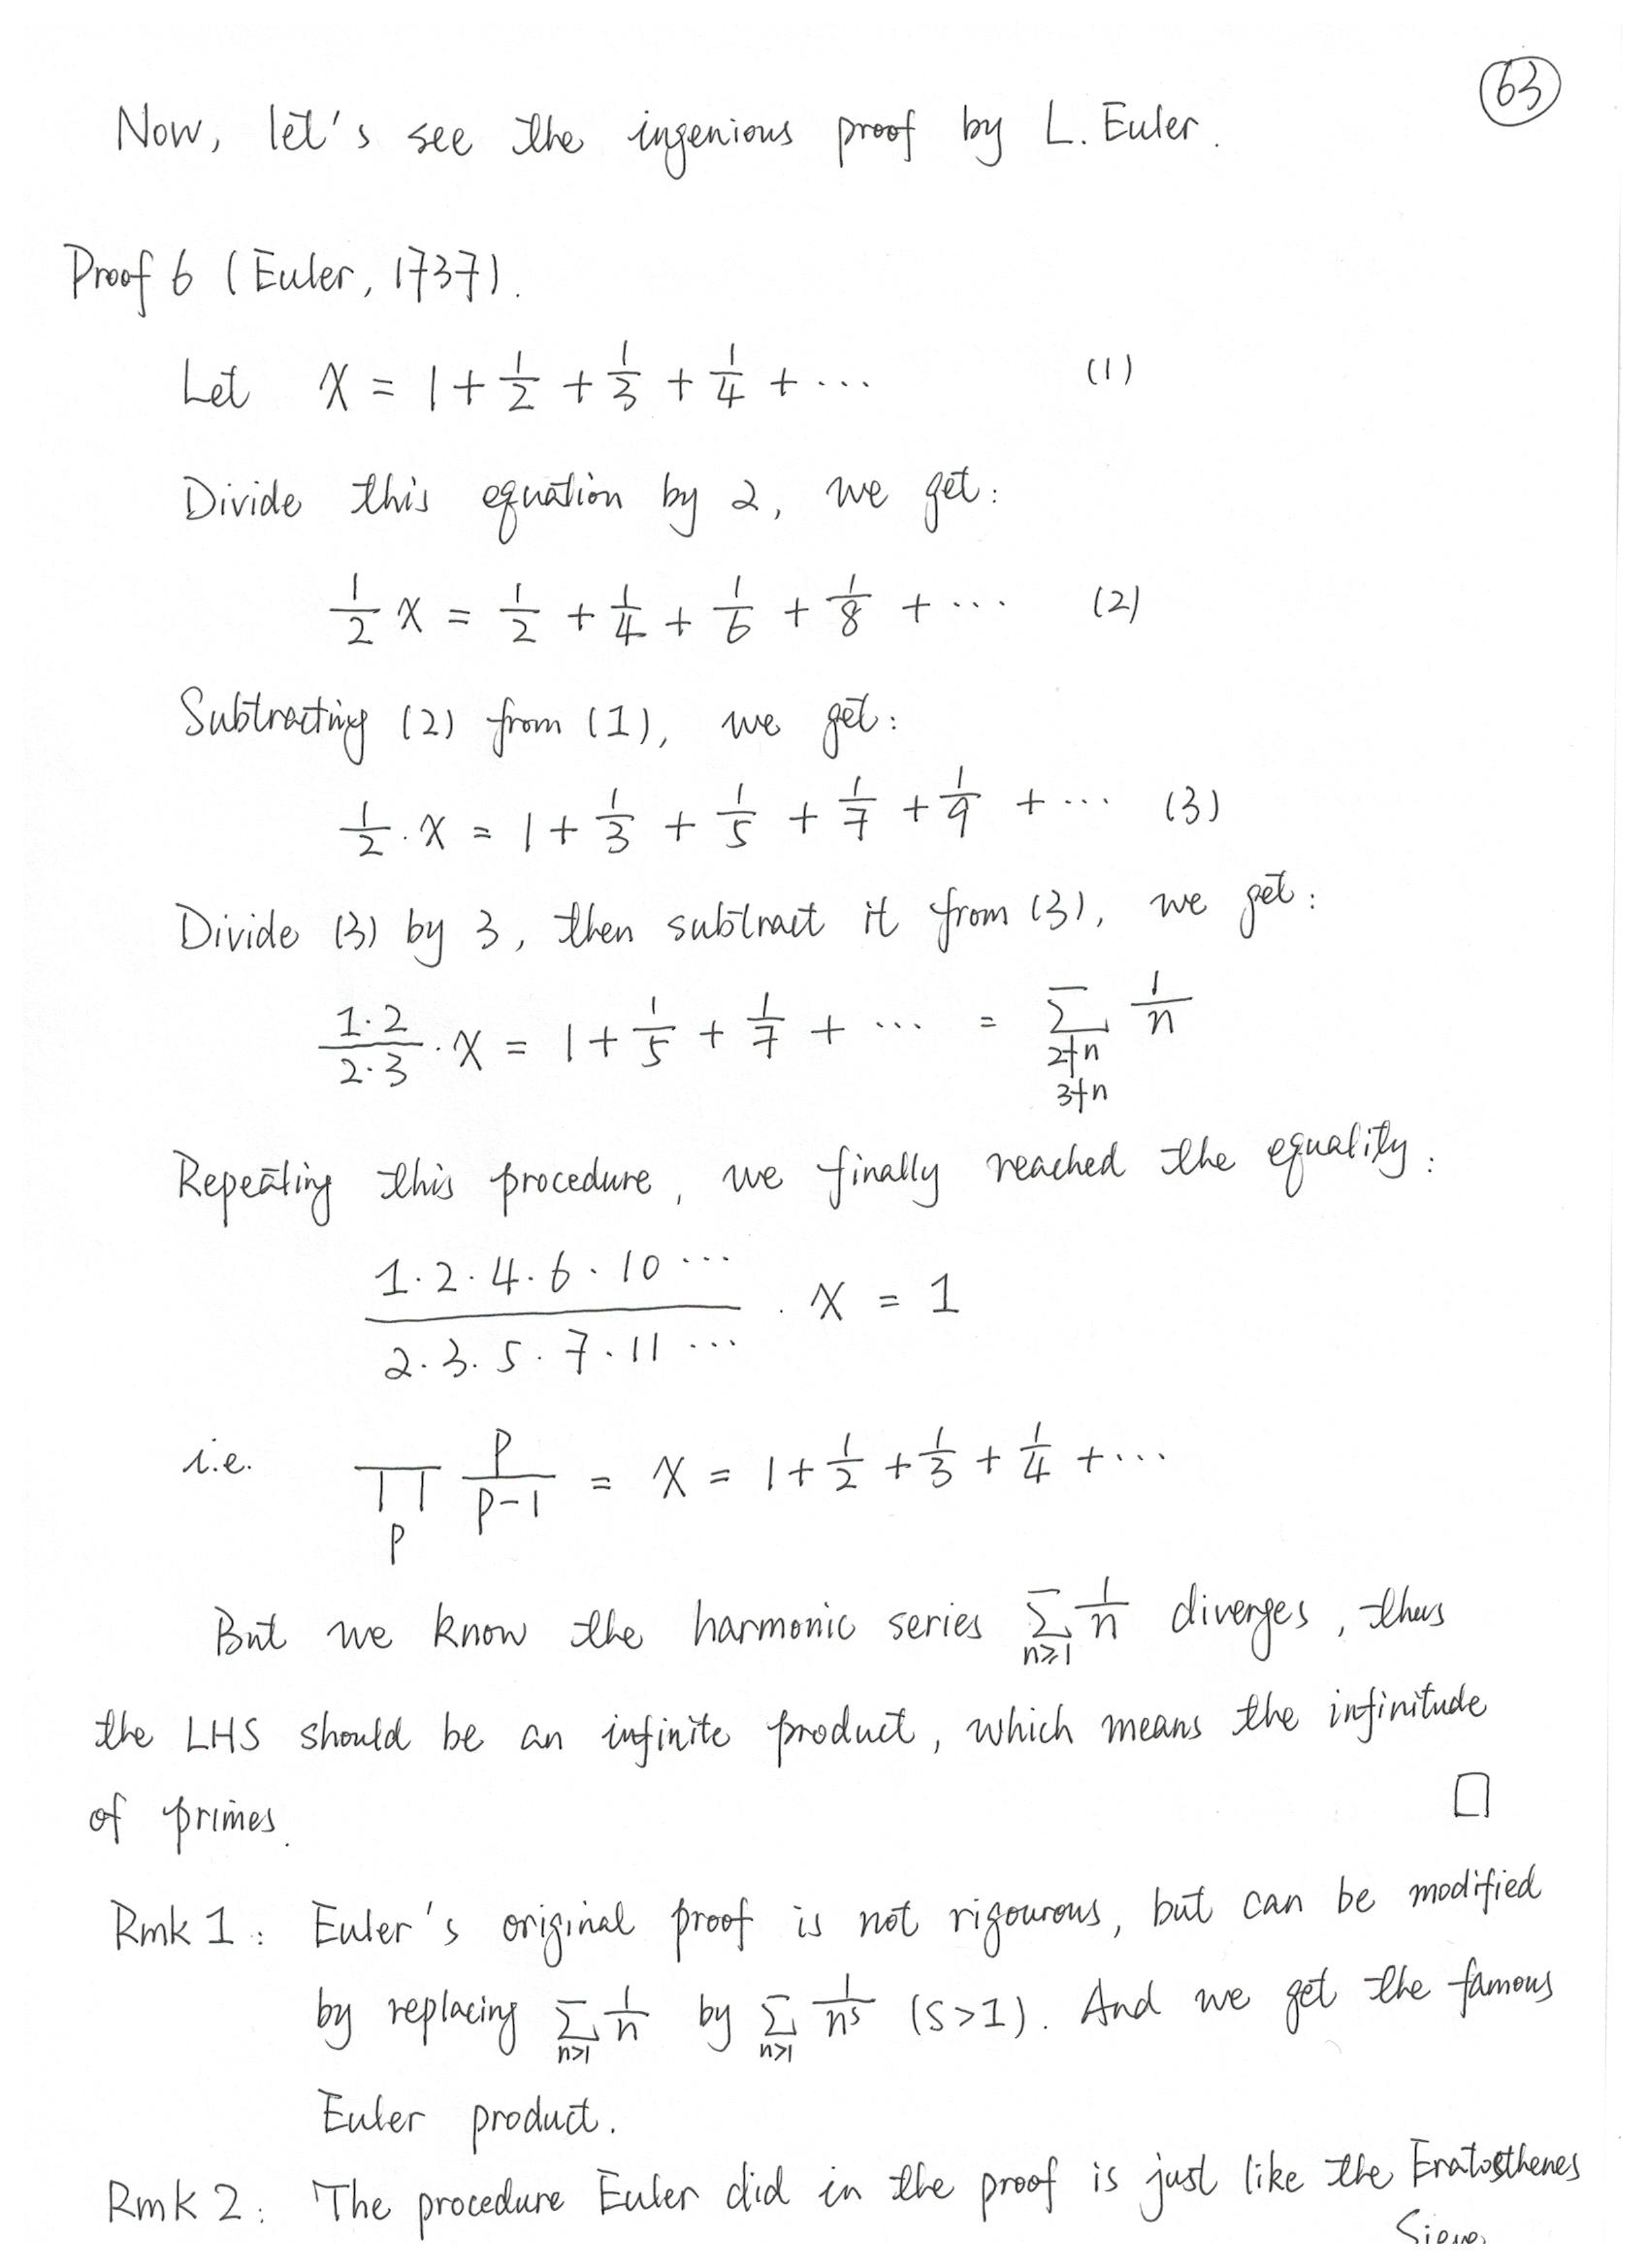 63
Now, let's see the ingenious proof by L. Euler.
Proof 6 (Euler, 1737).
Let x = 1 + 1/2 + 1/3 + 1/4 + ··· (1)
Divide this equation by 2, we get:
1/2 x = 1/2 + 1/4 + 1/6 + 1/8 + ··· (2)
Subtracting (2) from (1), we get:
1/2 · x = 1 + 1/3 + 1/5 + 1/7 + 1/9 + ··· (3)
Divide (3) by 3, then subtract it from (3), we get:
(1·2)/(2·3) · x = 1 + 1/5 + 1/7 + ··· = ∑_{2∤n, 3∤n} 1/n
Repeating this procedure, we finally reached the equality:
(1·2·4·6·10···)/(2·3·5·7·11···) · x = 1
i.e. ∏_p p/(p-1) = x = 1 + 1/2 + 1/3 + 1/4 + ···
But we know the harmonic series ∑_{n≥1} 1/n diverges, thus
the LHS should be an infinite product, which means the infinitude
of primes. □
Rmk 1: Euler's original proof is not rigourous, but can be modified
by replacing ∑_{n≥1} 1/n by ∑_{n≥1} 1/n^s (s>1). And we get the famous
Euler product.
Rmk 2: The procedure Euler did in the proof is just like the Eratosthenes
Sieve.